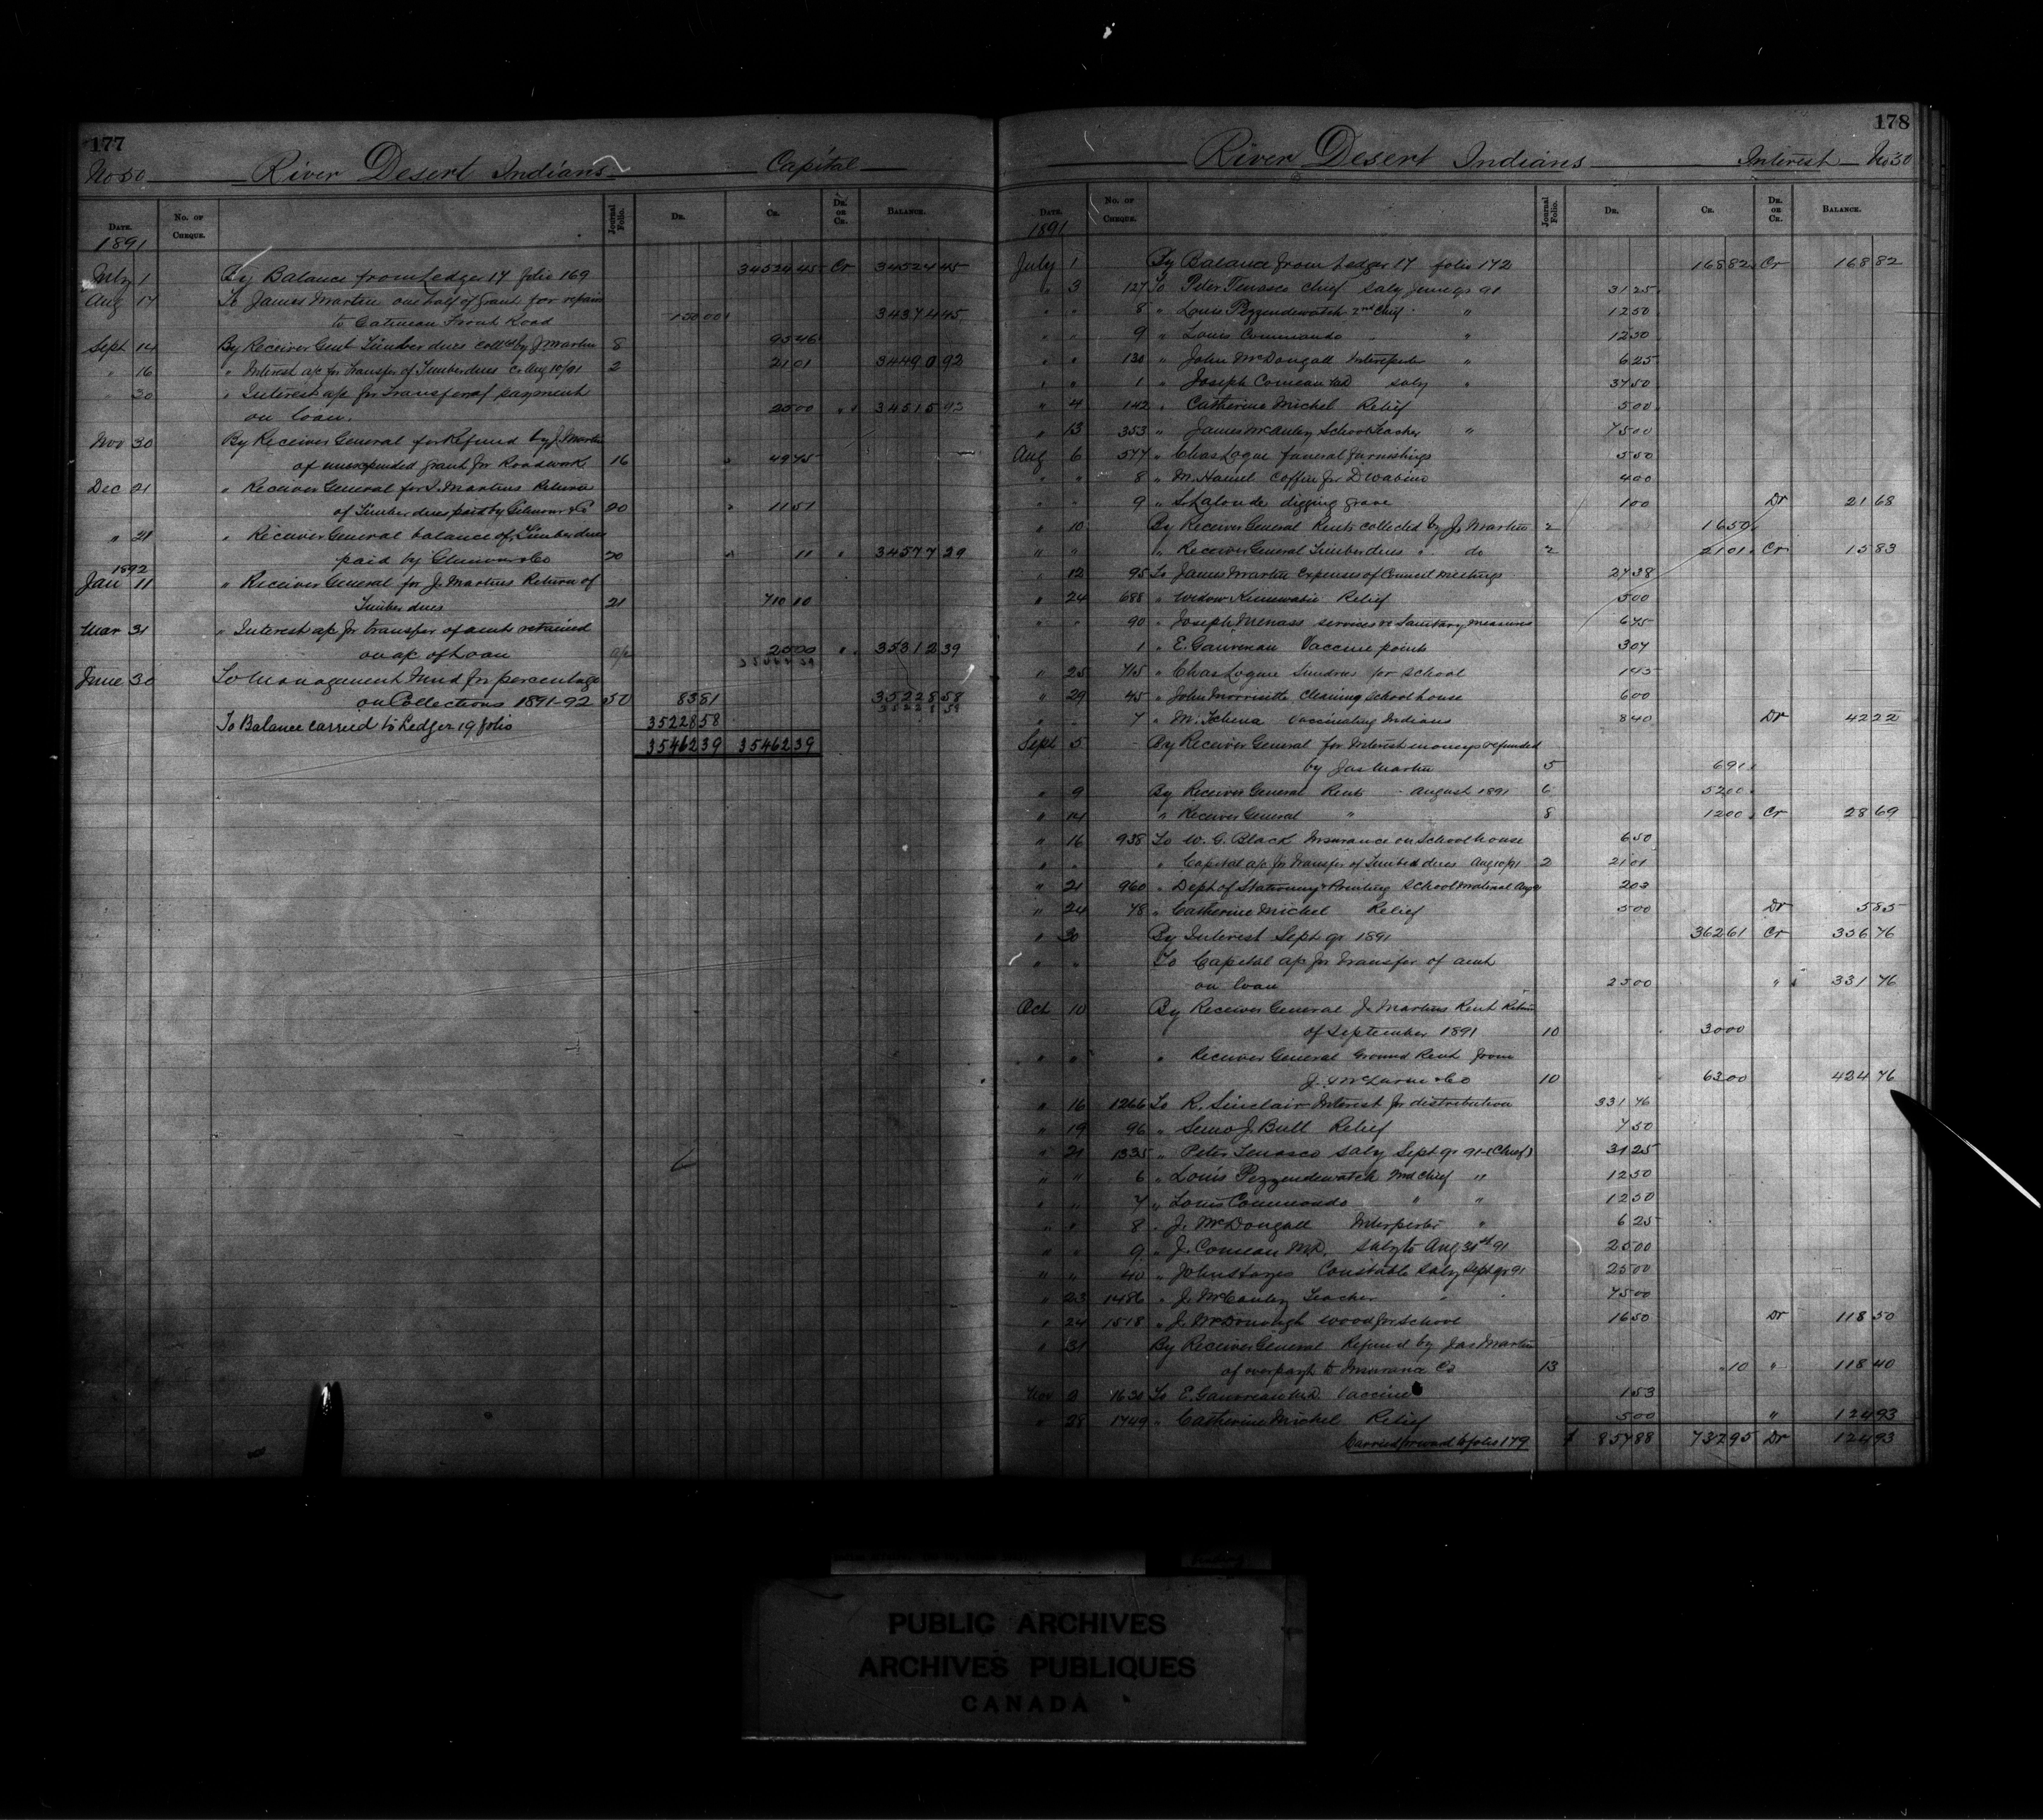 177
No 30 River Desert Indians Capital
DATE. No. OF CHEQUE. Journal Folio. DR. CR. DR. OR CR. BALANCE.
1891
July 1 By Balance from Ledger 17 folio 169 34524 45 Cr 34524 45
Aug 17 To James Martin one half of grant for repairs
to Gatineau Front Road 150 00 34374 45
Sept 14 By Receiver Genl Timber dues coll'd by J. Martin 8 95 46
" 16 " Interest a/c for Transfer of Timber dues Cr Aug 10/91 2 21 01 34490 92
" 30 " Interest a/c for Transfer of payment
on loan. 25 00 " 34515 92
Nov 30 By Receiver General for Refund by J. Martin
of unexpended grant for Roadwork 16 49 75
Dec 21 " Receiver General for J. Martins Return
of Timber dues paid by Gilmour & Co 20 11 51
" 21 " Receiver General balance of Timber dues
paid by Gilmour & Co 20 11 " 34577 29
1892
Jan 11 " Receiver General for J. Martins Return of
Timber dues 21 710 10
Mar 31 " Interest a/c for transfer of amt retained
on a/c of Loan 25 00 " 35312 39
June 30 To Management Fund for percentage
on Collections 1891-92 50 83 81 35228 58
To Balance carried to Ledger 19 folio 35228 58
35462 39 35462 39
178
River Desert Indians Interest No 30
DATE. No. OF CHEQUE. Journal Folio. DR. CR. DR. OR CR. BALANCE.
1891
July 1 By Balance from Ledger 17 folio 172 168 82 Cr 168 82
" 3 127 To Peter Tenasco Chief Saly June qr 91 31 25
" " 8 " Louis Pezzendewatch 2nd Chief " 12 50
9 " Louis Commando " 12 50
" " 130 " John McDougall Interpreter " 6 25
" " 1 " Joseph Comeau M.D. Saly " 37 50
" 4 142 " Catherine Michel Relief 5 00
" 13 353 " James McAuley School Teacher " 75 00
Aug 6 577 " Chas Logue funeral furnishings 5 50
" " 8 " M. Hamel Coffin for D. Wabino 4 00
" " 9 " S. Lalonde digging grave 1 00 Dr 21 68
" 10 By Receiver General Rents collected by J. Martin 2 16 50
" " " Receiver General Timber dues " do 2 21 01 Cr 15 83
" 12 95 To James Martin Expenses of Council Meetings 27 38
" 24 688 " Widow Relief 5 00
" " 90 " Joseph Menass services re Sanitary measures 6 75
1 " E. Gauvreau Vaccine points 3 07
" 25 715 " Chas Logue Sundries for School 1 45
" 29 45 " John Morrisette Cleaning School house 6 00
" " 7 " M. Tchena Vaccinating Indians 8 40 Dr 42 22
Sept 5 By Receiver General for Interest moneys refunded
by Jas Martin 5 6 91
" 9 By Receiver General Rents - August 1891 6 52 00
" 14 " Receiver General " 8 12 00 Cr 28 69
" 16 938 To W. G. Black Insurance on School house 6 50
" " " Capital a/c for Transfer of Timber dues Aug 10/91 2 21 01
" 21 960 " Dept of Stationery & Printing School material Aug 2 03
" 24 78 " Catherine Michel Relief 5 00 Dr 5 85
" 30 By Interest Sept qr 1891 362 61 Cr 356 76
" " To Capital a/c for Transfer of amt
on loan 25 00 " 331 76
Oct 10 By Receiver General J. Martins Rent Return
of September 1891 10 30 00
" " " Receiver General Ground Rent from
J. McLaren & Co 10 63 00 424 76
" 16 1266 To R. Sinclair Interest for distribution 331 76
" 19 96 " Semo J. Bull Relief 7 50
" 21 1335 " Peter Tenasco Saly Sept qr 91 (Chief) 31 25
" " 6 " Louis Pezzendewatch 2nd Chief " 12 50
" " 7 " Louis Commando " " 12 50
" " 8 " J. McDougall Interpreter " 6 25
" " 9 " J. Comeau M.D. Saly to Aug 31st 91 25 00
" " 40 " John Hayes Constable Saly Sept qr 91 25 00
" 23 1486 " J. McCauley Teacher " 75 00
" 24 1518 " J. McDonough wood for School 16 50 Dr 118 50
" 31 By Receiver General Refund by Jas Martin
of over payt to Insurance Co 13 10 " 118 40
Nov 3 1630 To E. Gauvreau M.D. Vaccine 1 53
" 28 1749 " Catherine Michel Relief 5 00 " 124 93
Carried forward to folio 179 $ 857 88 732 95 Dr 124 93
PUBLIC ARCHIVES
ARCHIVES PUBLIQUES
CANADA